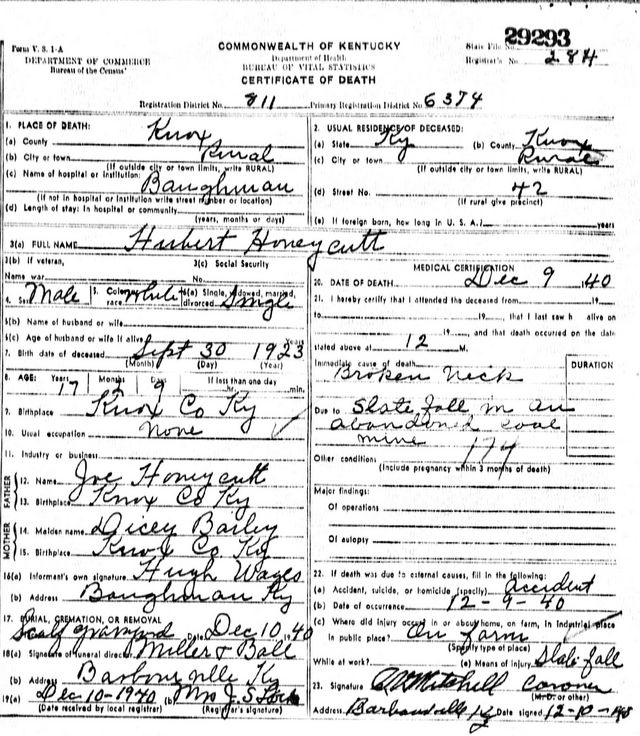 Form V. S. 1-A
DEPARTMENT OF COMMERCE
Bureau of the Census
COMMONWEALTH OF KENTUCKY
Department of Health
BUREAU OF VITAL STATISTICS
CERTIFICATE OF DEATH
State File No. 29293
Registrar's No. 284
Registration District No. 811 Primary Registration District No. 6374
1. PLACE OF DEATH:
(a) County Knox
(b) City or town Rural
(If outside city or town limits, write RURAL)
(c) Name of hospital or institution: Baughman
(If not in hospital or institution write street number or location)
(d) Length of stay: In hospital or community
(years, months or days)
2. USUAL RESIDENCE OF DECEASED:
(a) State Ky (b) County Knox
(c) City or town Rural
(If outside city or town limits, write RURAL)
(d) Street No. 42
(If rural give precinct)
(e) If foreign born, how long in U. S. A.? years
3(a) FULL NAME Hubert Honeycutt
3(b) If veteran, 3(c) Social Security
Name war No.
4. Sex Male 5. Color or race white 6(a) Single, widowed, married, divorced Single
6(b) Name of husband or wife
6(c) Age of husband or wife if alive Years
7. Birth date of deceased Sept 30 1923
(Month) (Day) (Year)
8. AGE: Years 17 Months 2 Days 9 If less than one day hr. min.
9. Birthplace Knox Co Ky
10. Usual occupation None
11. Industry or business
FATHER
12. Name Joe Honeycutt
13. Birthplace Knox Co Ky
MOTHER
14. Maiden name Dicey Bailey
15. Birthplace Knox Co Ky
16(a) Informant's own signature Hugh Wages
(b) Address Baughman Ky
17. BURIAL, CREMATION, OR REMOVAL
Scalf graveyard Date Dec 10, 1940
18(a) Signature of funeral director Miller & Ball
(b) Address Barbourville Ky
19(a) Dec 10-1940 (b) Mrs J. S.
(Date received by local registrar) (Registrar's signature)
MEDICAL CERTIFICATION
20. DATE OF DEATH Dec 9 40
21. I hereby certify that I attended the deceased from 19
to 19, that I last saw h alive on
19, and that death occurred on the date
stated above at 12 M.
DURATION
Immediate cause of death
Broken Neck
Due to Slate fall in an
abandoned coal
mine 174
Other conditions
(Include pregnancy within 3 months of death)
Major findings:
Of operations
Of autopsy
22. If death was due to external causes, fill in the following:
(a) Accident, suicide, or homicide (specify) accident
(b) Date of occurrence 12-9-40
(c) Where did injury occur in or about home, on farm, in industrial place
in public place? On farm
(Specify type of place)
While at work? (e) Means of injury Slate fall
23. Signature Mitchell Coroner
(M. D. or other)
Address Barbourville Ky Date signed 12-10-